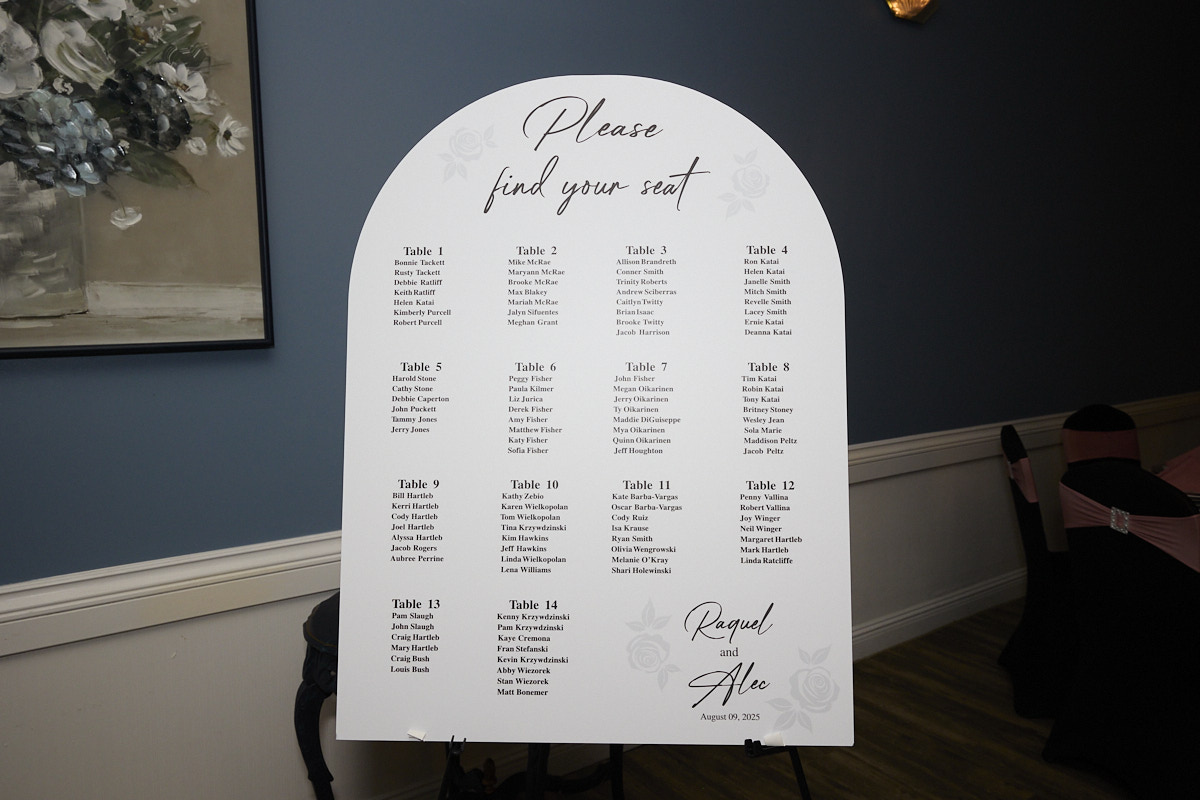 Please
find your seat
Table 1
Bonnie Tackett
Rusty Tackett
Debbie Ratliff
Keith Ratliff
Helen Katai
Kimberly Purcell
Robert Purcell
Table 2
Mike McRae
Maryann McRae
Brooke McRae
Max Blakey
Mariah McRae
Jalyn Sifuentes
Meghan Grant
Table 3
Allison Brandreth
Conner Smith
Trinity Roberts
Andrew Sciberras
Caitlyn Twitty
Brian Isaac
Brooke Twitty
Jacob Harrison
Table 4
Ron Katai
Helen Katai
Janelle Smith
Mitch Smith
Revelle Smith
Lacey Smith
Ernie Katai
Deanna Katai
Table 5
Harold Stone
Cathy Stone
Debbie Caperton
John Puckett
Tammy Jones
Jerry Jones
Table 6
Peggy Fisher
Paula Kilmer
Liz Jurica
Derek Fisher
Amy Fisher
Matthew Fisher
Katy Fisher
Sofia Fisher
Table 7
John Fisher
Megan Oikarinen
Jerry Oikarinen
Ty Oikarinen
Maddie DiGuiseppe
Mya Oikarinen
Quinn Oikarinen
Jeff Houghton
Table 8
Tim Katai
Robin Katai
Tony Katai
Britney Stoney
Wesley Jean
Sola Marie
Maddison Peltz
Jacob Peltz
Table 9
Bill Hartleb
Kerri Hartleb
Cody Hartleb
Joel Hartleb
Alyssa Hartleb
Jacob Rogers
Aubree Perrine
Table 10
Kathy Zebio
Karen Wielkopolan
Tom Wielkopolan
Tina Krzywdzinski
Kim Hawkins
Jeff Hawkins
Linda Wielkopolan
Lena Williams
Table 11
Kate Barba-Vargas
Oscar Barba-Vargas
Cody Ruiz
Isa Krause
Ryan Smith
Olivia Wengrowski
Melanie O'Kray
Shari Holewinski
Table 12
Penny Vallina
Robert Vallina
Joy Winger
Neil Winger
Margaret Hartleb
Mark Hartleb
Linda Ratcliffe
Table 13
Pam Slaugh
John Slaugh
Craig Hartleb
Mary Hartleb
Craig Bush
Louis Bush
Table 14
Kenny Krzywdzinski
Pam Krzywdzinski
Kaye Cremona
Fran Stefanski
Kevin Krzywdzinski
Abby Wiezorek
Stan Wiezorek
Matt Bonemer
Raquel
and
Alec
August 09, 2025